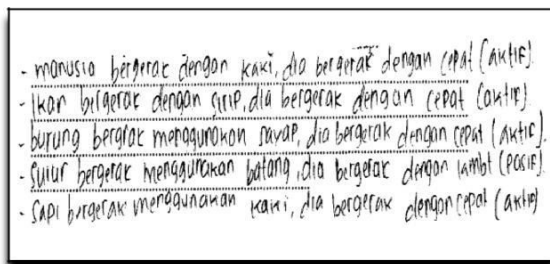 - manusia bergerak dengan kaki, dia bergerak dengan cepat (aktif).
- Ikan bergerak dengan sirip, dia bergerak dengan cepat (aktif).
- burung bergrak menggunakan sayap, dia bergerak dengan cepat (aktif).
- Sulur bergerak menggunakan batang, dia bergerak dengan lambt (pasif).
- Sapi bergerak menggunakan kaki, dia bergerak dengan cepat (aktif)